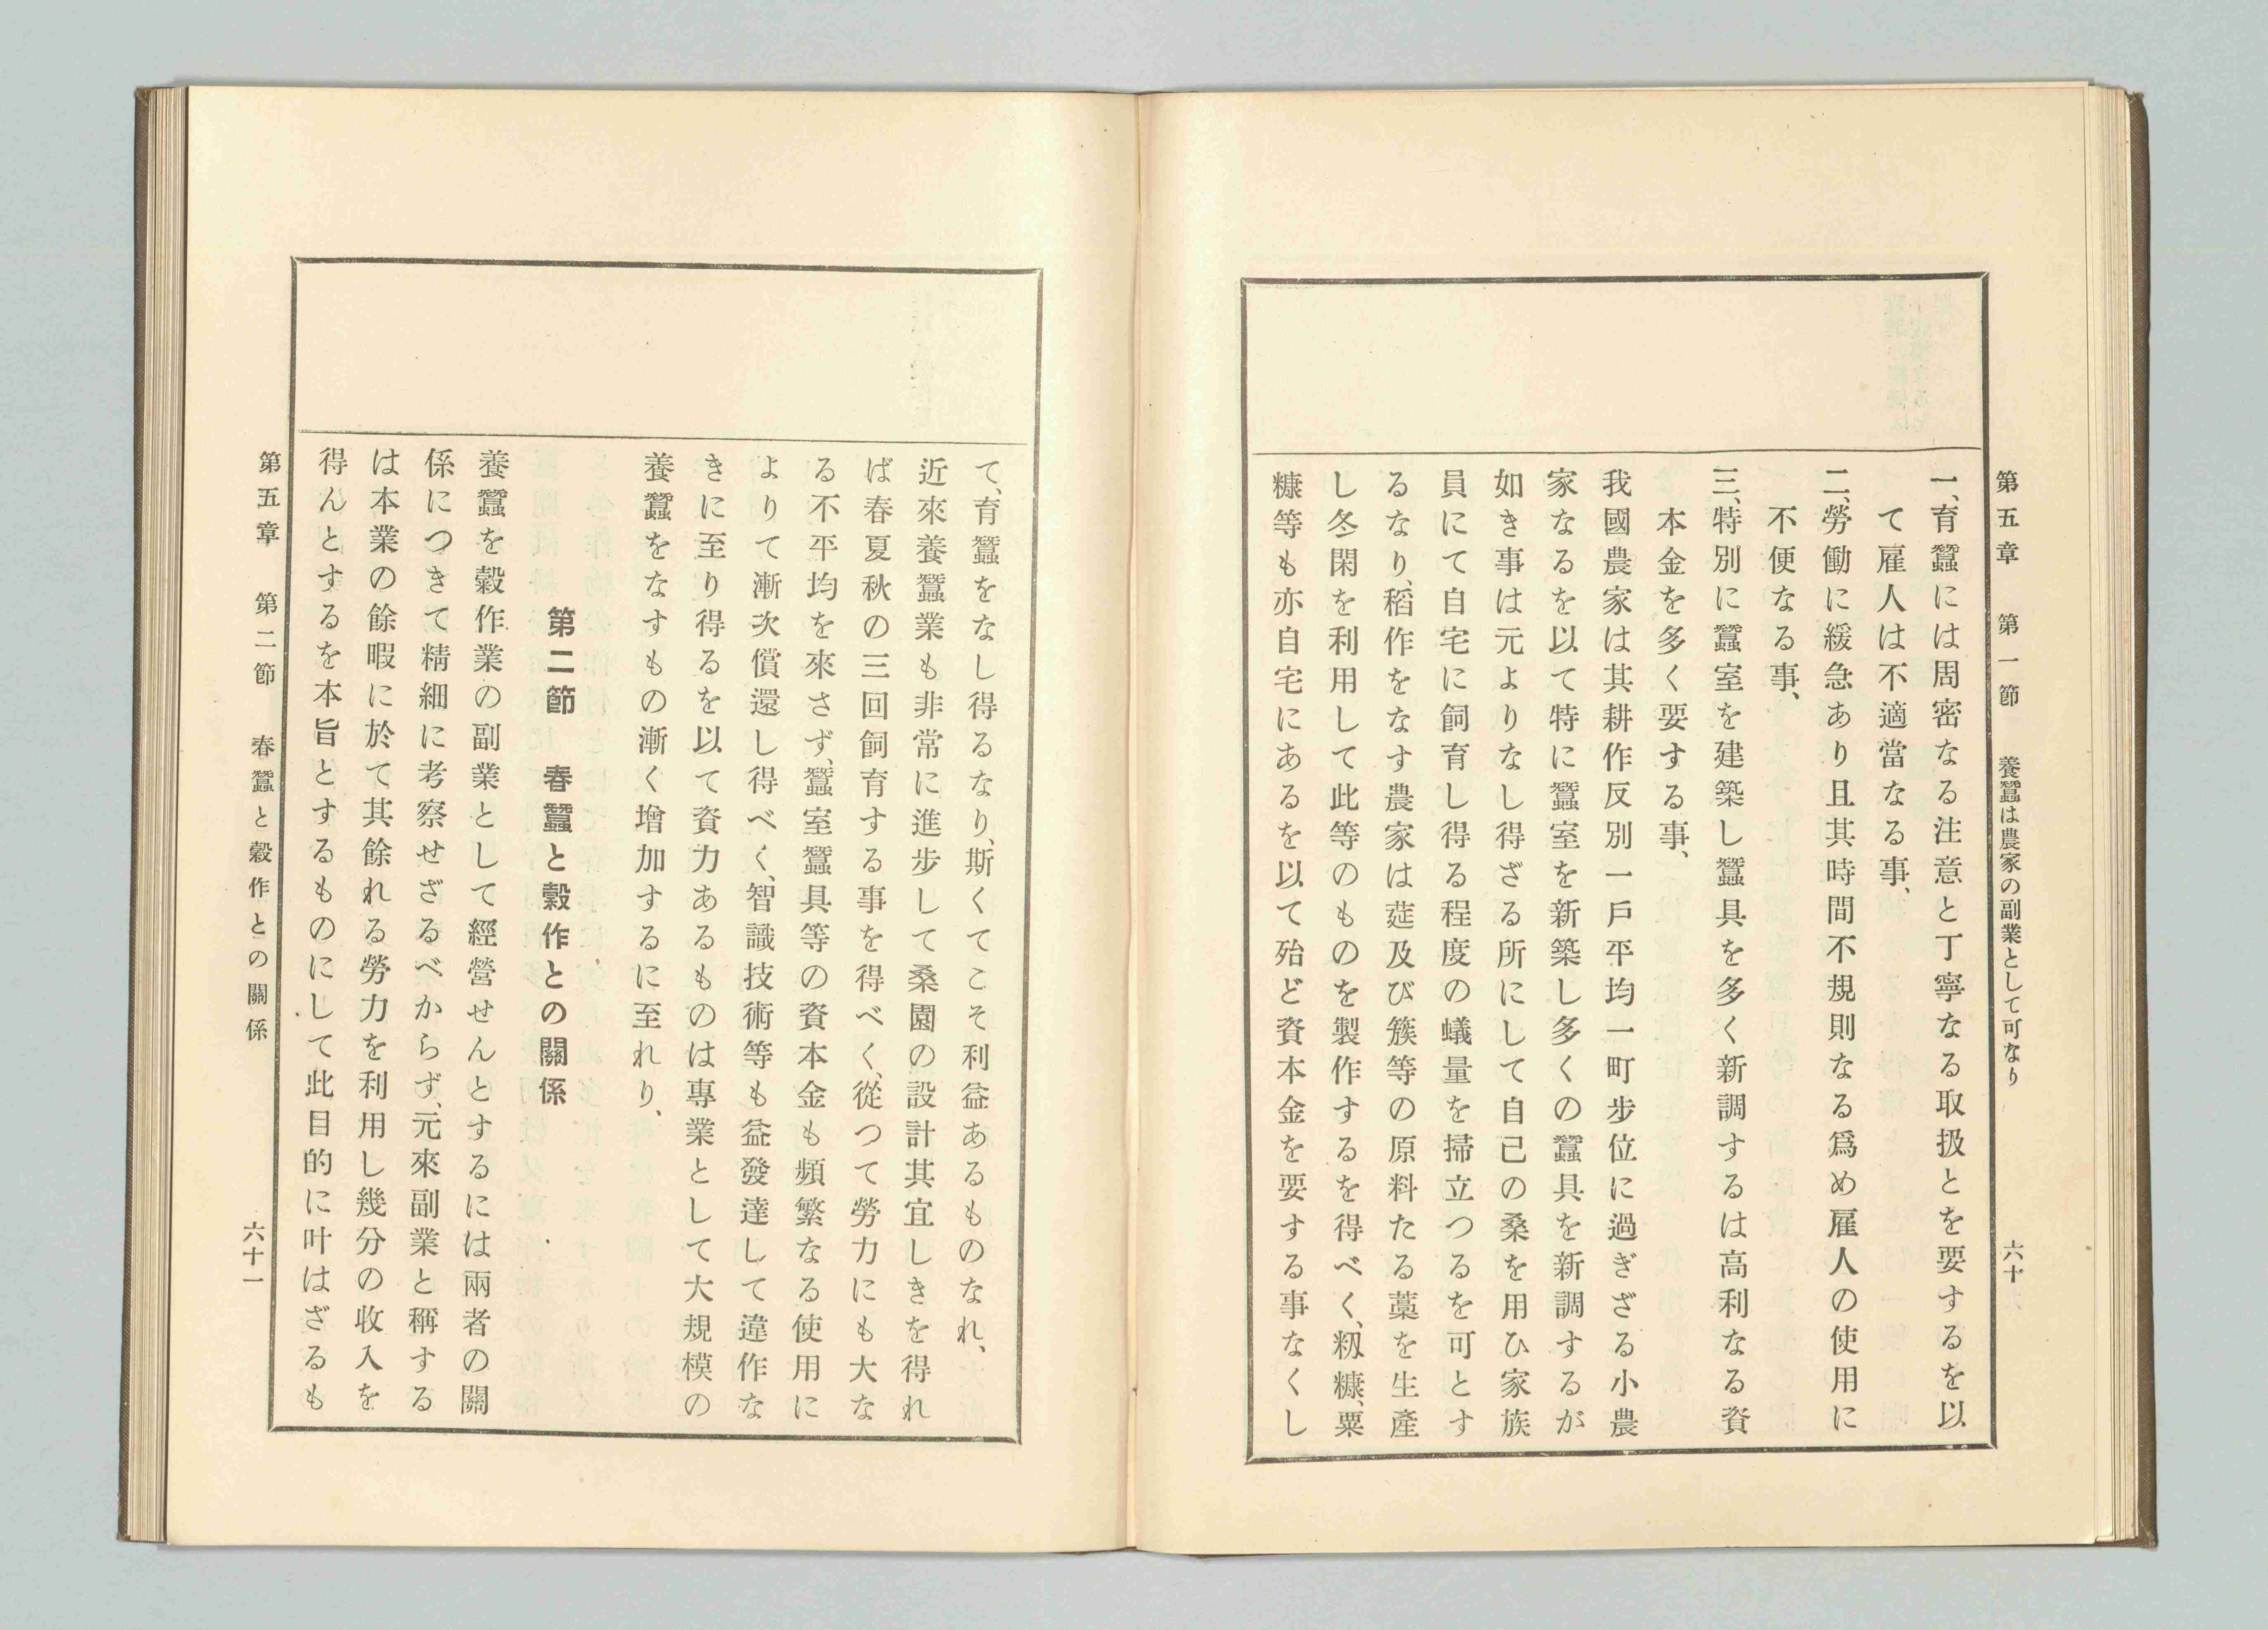 第五章 第一節 養蠶は農家の副業として可なり 六十
一、育蠶には周密なる注意と丁寧なる取扱とを要するを以
て雇人は不適當なる事、
二、勞働に緩急あり且其時間不規則なる爲め雇人の使用に
不便なる事、
三、特別に蠶室を建築し蠶具を多く新調するは高利なる資
本金を多く要する事、
我國農家は其耕作反別一戶平均一町步位に過ぎざる小農
家なるを以て特に蠶室を新築し多くの蠶具を新調するが
如き事は元よりなし得ざる所にして自己の桑を用ひ家族
員にて自宅に飼育し得る程度の蟻量を掃立つるを可とす
るなり、稻作をなす農家は莚及び簇等の原料たる藁を生產
し冬閑を利用して此等のものを製作するを得べく、籾糠、粟
糠等も亦自宅にあるを以て殆ど資本金を要する事なくし
て、育蠶をなし得るなり、斯くてこそ利益あるものなれ、
近來養蠶業も非常に進步して桑園の設計其宜しきを得れ
ば春夏秋の三回飼育する事を得べく、從つて勞力にも大な
る不平均を來さず、蠶室蠶具等の資本金も頻繁なる使用に
よりて漸次償還し得べく、智識技術等も益發達して違作な
きに至り得るを以て資力あるものは專業として大規模の
養蠶をなすもの漸く增加するに至れり、
第二節 春蠶と穀作との關係
養蠶を穀作業の副業として經營せんとするには兩者の關
係につきて精細に考察せざるべからず、元來副業と稱する
は本業の餘暇に於て其餘れる勞力を利用し幾分の收入を
得んとするを本旨とするものにして此目的に叶はざるも
第五章 第二節 春蠶と穀作との關係 六十一